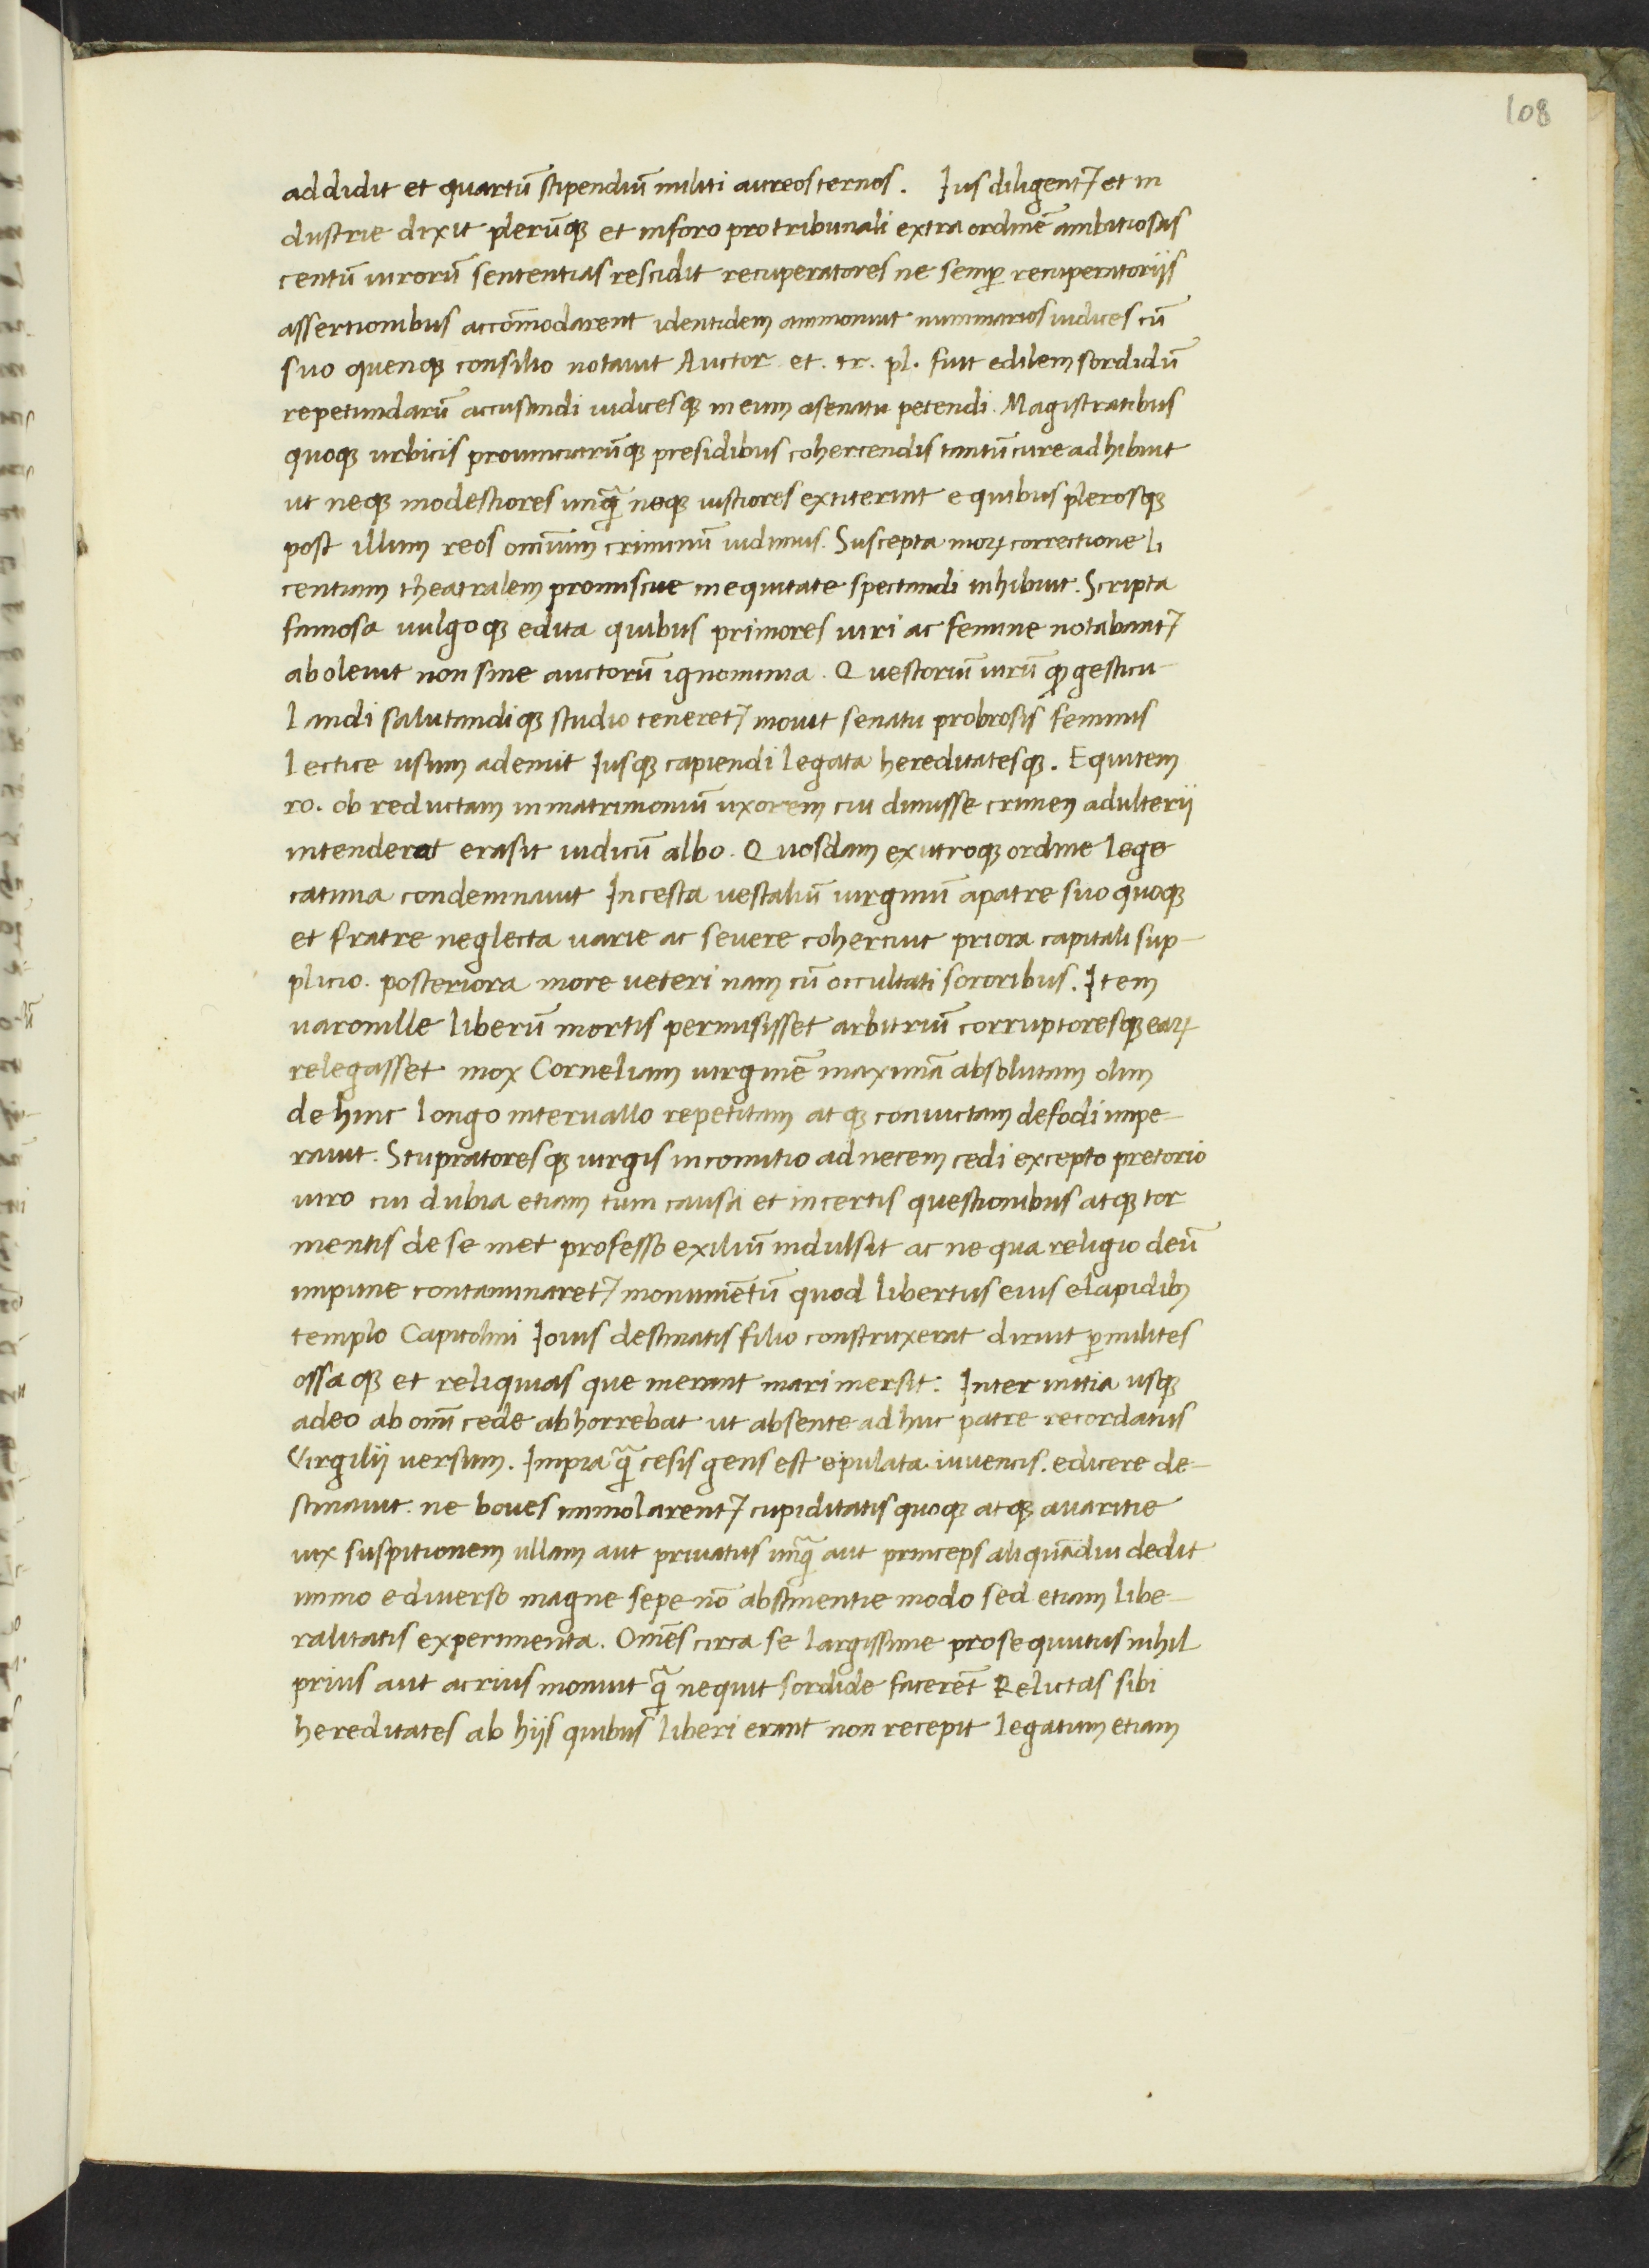 108
addidit et quartū stipendiū militi aureos ternos. Ius diligent⁊ et in
dustrie dixit plerūqꝫ et in foro pro tribunali extra ordinē ambitiosas
centū uirorū sententias rescidit recuperatores ne semꝑ recuperatoriis
assertionibus accōmodarent identidem ammonuit nummarios iudices cū
suo quenqꝫ consilio notauit Auctor et. tr. pl. fuit edilem sordidū
repetundarū accusandi iudicesqꝫ in eum a senatu petendi. Magistratibus
quoqꝫ urbicis prouinciarūqꝫ presidibus cohercendis tantū cure adhibuit
ut neqꝫ modestiores unqᷓ neqꝫ iustiores extiterint e quibus plerosqꝫ
post illum reos omniūm criminū uidimus. Suscepta moꝝ correctione li
centiam theatralem promiscue in equitate spectandi inhibuit. Scripta
famosa uulgoqꝫ edita quibus primores uiri ac femine notabant⁊
aboleuit non sine auctorū ignominia. Questoriū uirū ꝙ gesticu-
landi salutandiqꝫ studio teneret⁊ mouit senatu probrosis feminis
lectice usum ademit Iusqꝫ capiendi legata hereditatesqꝫ. Equitem
ro. ob reductam in matrimoniū uxorem cui dimisse crimen adulterij
intenderat erasit iudicū albo. Quosdam ex utroqꝫ ordine lege
catinia condemnauit Incesta uestaliū uirginū a patre suo quoqꝫ
et fratre neglecta uarie ac seuere cohercuit priora capitali sup-
plicio. posteriora more ueteri nam cū occultati sororibus. Item
uaronille liberū mortis permisisset arbitriū corruptoresqꝫ eaꝝ
relegasset mox Corneliam uirginē maximā absolutam olim
de hinc longo interuallo repetitam atqꝫ conuictam defodi impe-
rauit. Stupratoresqꝫ uirgis in comitio ad necem cedi excepto pretorio
uiro cui dubia etiam tum causa et incertis questionibus atqꝫ tor
mentis de se met professo exiliū indulsit ac ne qua religio deū
impune contaminaret⁊ monumētū quod libertus eius e lapidibꝫ
templo Capitolini Iouis destinatis filio construxerat diruit ꝑ milites
ossaqꝫ et reliquias que inerant mari mersit: Inter initia usqꝫ
adeo ab omī cede abhorrebat ut absente ad huc patre recordatus
Virgilij uersum. Impia qᷓ cesis gens est epulata iuuencis. edicere de-
stinauit. ne boues immolarent⁊ cupiditatis quoqꝫ atqꝫ auaritie
uix suspitionem ullam aut priuatus unqᷓ aut princeps aliquādiu dedit
immo e diuerso magne sepe nō abstinentie modo sed etiam libe-
ralitatis experimenta. Omēs circa se largissime prosequutus nihil
prius aut acrius monuit qᷓ ne quit sordide facerēt Relictas sibi
hereditates ab hijs quibus liberi erant non recepit legatum etiam